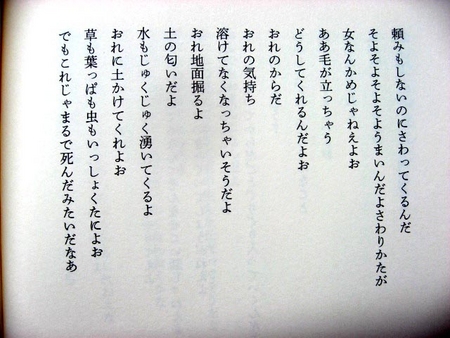 頼みもしないのにさわってくるんだ
そよそよそよそようまいんだよさわりかたが
女なんかめじゃねえよお
ああ毛が立っちゃう
どうしてくれるんだよお
おれのからだ
おれの気持ち
溶けてなくなっちゃいそうだよ
おれ地面掘るよ
土の匂いだよ
水もじゅくじゅく湧いてくるよ
おれに土かけてくれよお
草も葉っぱも虫もいっしょくたによお
でもこれじゃまるで死んだみたいだなあ